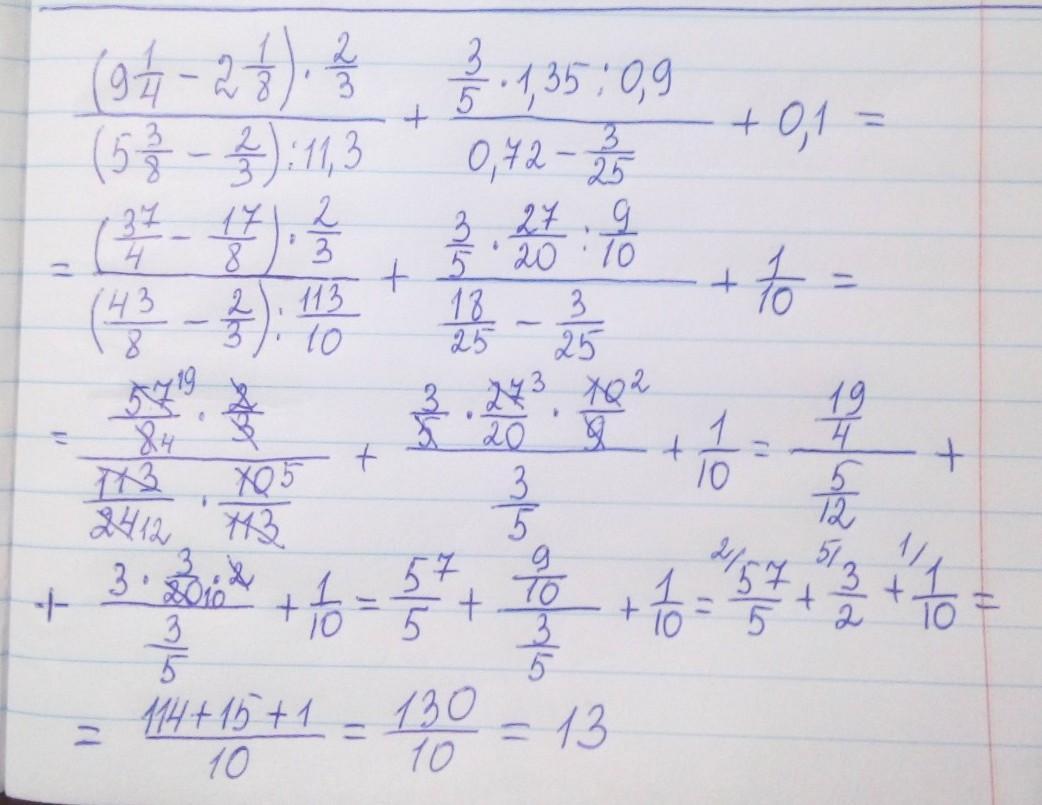 ((9 1/4 − 2 1/8) · 2/3) / ((5 3/8 − 2/3) : 11,3) + (3/5 · 1,35 : 0,9) / (0,72 − 3/25) + 0,1 =
= ((37/4 − 17/8) · 2/3) / ((43/8 − 2/3) : 113/10) + (3/5 · 27/20 : 9/10) / (18/25 − 3/25) + 1/10 =
= (57 19/8 4 · 2/3) / (113/24 12 · 10 5/113) + (3/5 · 27 3/20 · 10 2/9) / (3/5) + 1/10 = (19/4) / (5/12) +
+ (3 · 3/20 10 · 2) / (3/5) + 1/10 = 57/5 + (9/10) / (3/5) + 1/10 = 2/ 57/5 + 5/ 3/2 + 1/ 1/10 =
= (114+15+1)/10 = 130/10 = 13